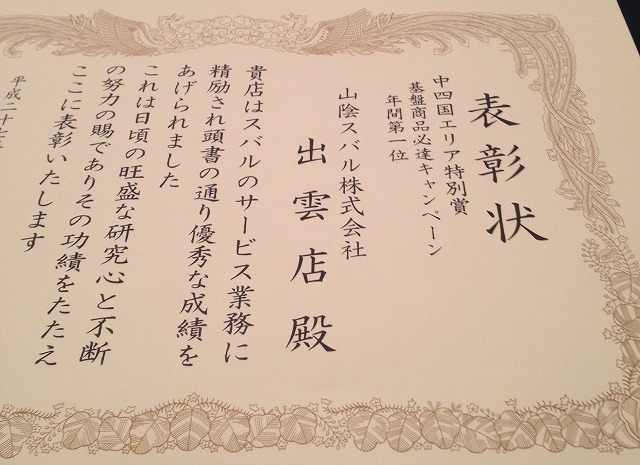 表彰状
中四国エリア特別賞
基盤商品必達キャンペーン
年間第一位
山陰スバル株式会社
出雲店殿
貴店はスバルのサービス業務に
精励され頭書の通り優秀な成績を
あげられました
これは日頃の旺盛な研究心と不断
の努力の賜でありその功績をたたえ
ここに表彰いたします
平成二十七